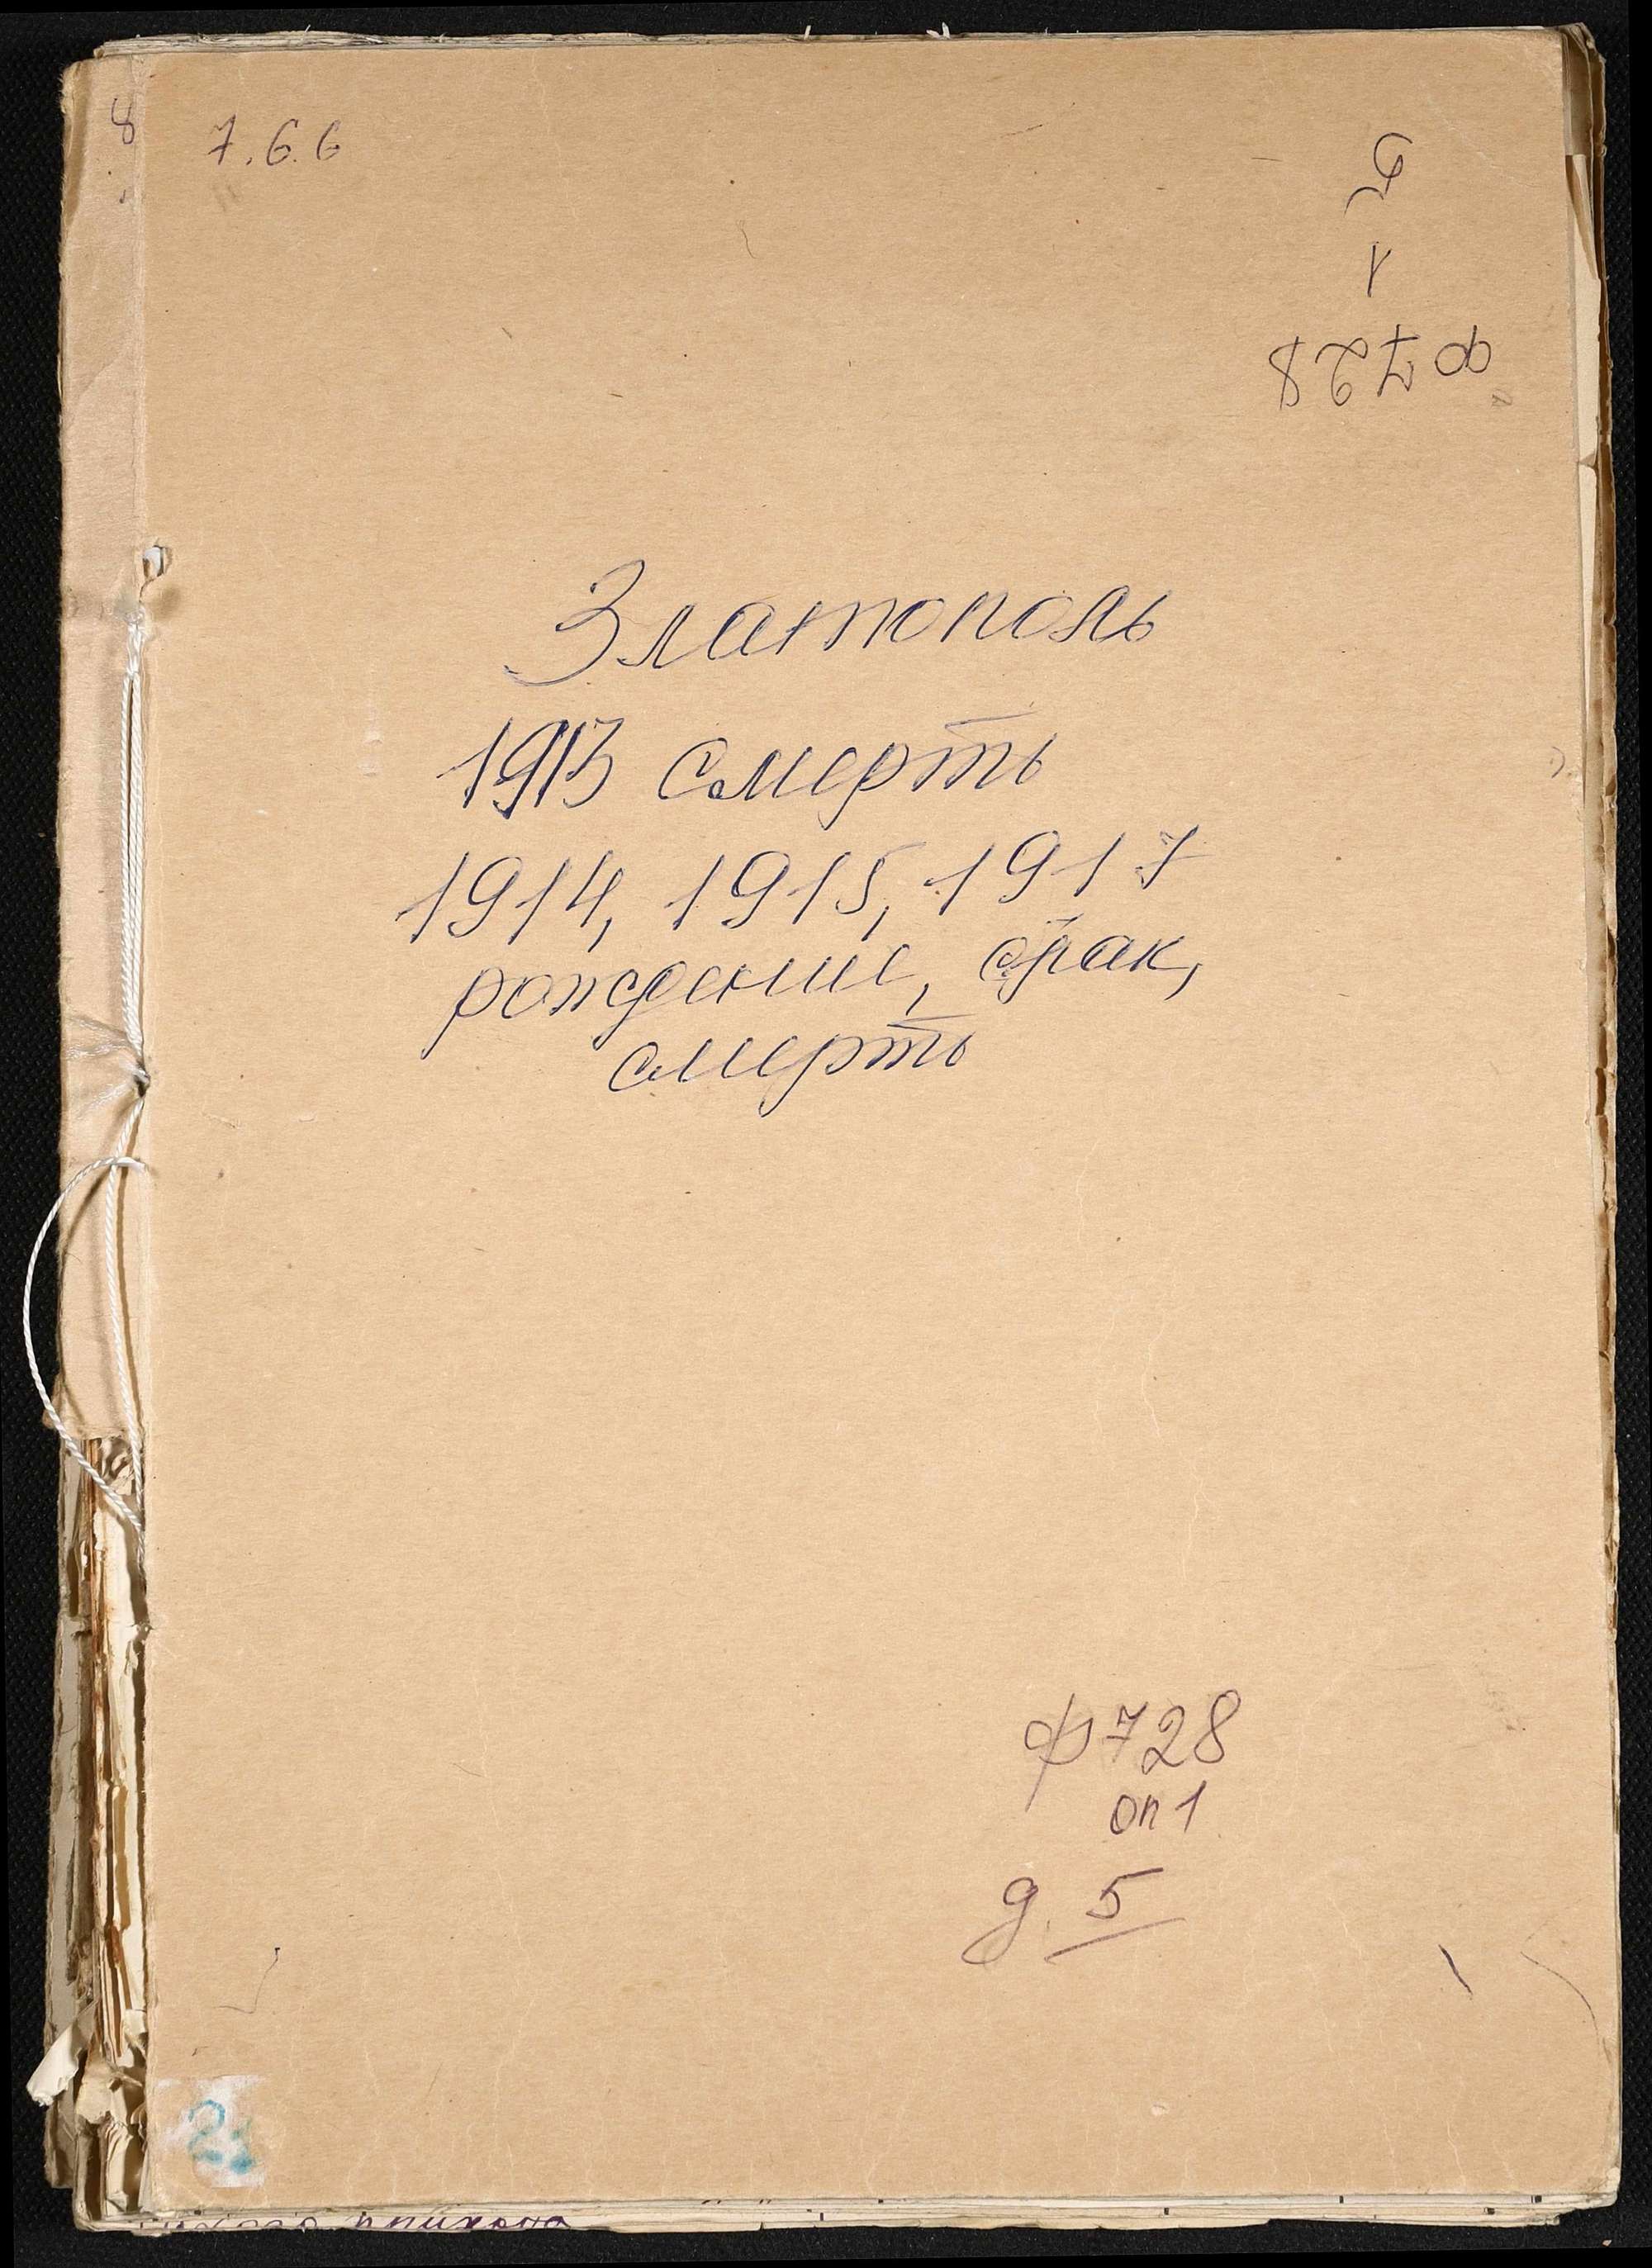 8
7.6.6
5
1
ф 728
Златополь
1913 смерть
1914, 1915, 1917
рождение, брак,
смерть
ф 728
оп 1
д. 5